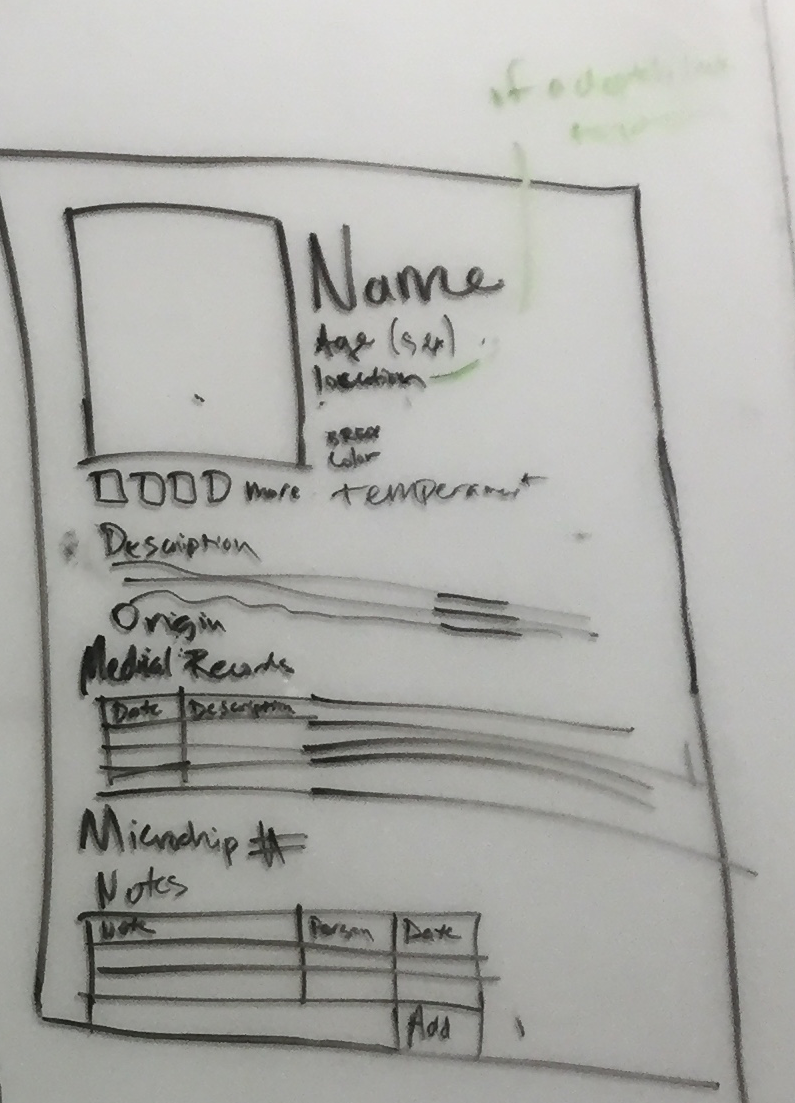 if adoptable
Name
Age (sex)
location
BREED
Color
more temperament
Description
Origin
Medial Records
Date Description
Microchip #
Notes
Note Person Date
Add